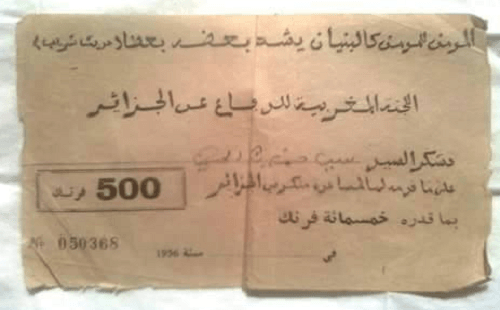 المؤمن للمؤمن كالبنيان يشد بعضه بعضا (حديث شريف)
اللجنة المغربية للدفاع عن الجزائر
تشكر السيد
على ما قدمه لمساعدة منكوبي الجزائر
بما قدره خمسمائة فرنك
500 فرنك
في سنة 1956
№ 050368